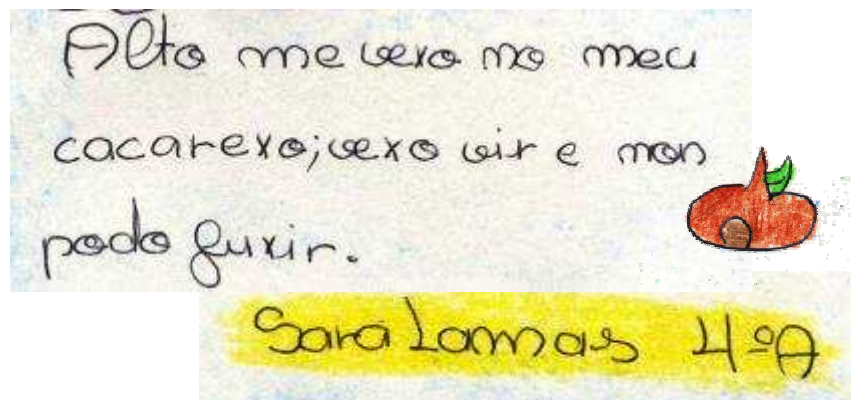 Alto me vexo no meu
cacarexo; vexo vir e non
podo fuxir.
Sara Lamas 4ºA